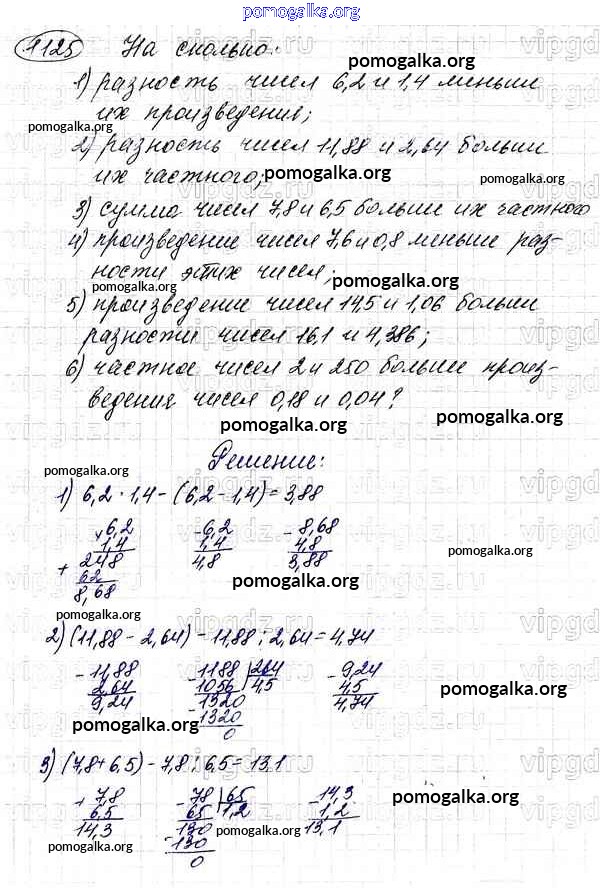 pomogalka.org
1125 На сколько:
1) разность чисел 6,2 и 1,4 меньше
их произведения;
pomogalka.org
2) разность чисел 11,88 и 2,64 больше
их частного;
pomogalka.org
3) сумма чисел 7,8 и 6,5 больше их частного
4) произведение чисел 7,6 и 0,8 меньше раз-
ности этих чисел;
pomogalka.org
5) произведение чисел 14,5 и 1,06 больше
разности чисел 16,1 и 4,386;
6) частное чисел 2 и 250 больше произ-
ведения чисел 0,18 и 0,04?
pomogalka.org
Решение:
pomogalka.org
1) 6,2 · 1,4 - (6,2 - 1,4) = 3,88
× 6,2 - 6,2 - 8,68
1,4 1,4 4,8
+ 248 4,8 3,88
62
8,68
pomogalka.org
2) (11,88 - 2,64) - 11,88 : 2,64 = 4,74
- 11,88 - 1188 264 - 9,24
2,64 1056 4,5 4,5
9,24 - 1320 4,74
1320
0
pomogalka.org
3) (7,8 + 6,5) - 7,8 : 6,5 = 13,1
+ 7,8 - 78 65 - 14,3
6,5 65 1,2 1,2
14,3 - 130 13,1
130
0
pomogalka.org